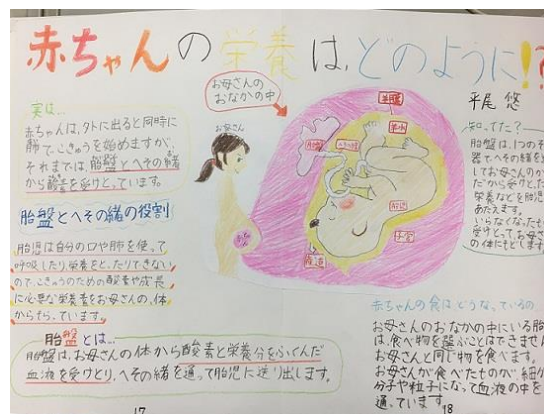 赤ちゃんの栄養は、どのように!?
平尾 悠
お母さんの
おなかの中
お母さん
実は…
赤ちゃんは、外に出ると同時に
肺でこきゅうを始めますが
それまでは、胎盤とへその緒
から酸素を受けとっています。
胎盤とへその緒の役割
胎児は自分の口や肺を使って
呼吸したり、栄養をとったりできない
ので、こきゅうのための酸素や成長
に必要な栄養素をお母さんの、体
からもらっています。
胎盤とは…
胎盤は、お母さんの体から酸素と栄養分をふくんだ
血液を受けとり、へその緒を通って胎児に送り出します。
17
羊水
胎盤
へその緒
胎児
子宮
産道
知ってた?
胎盤は、1つのぞ
器で、へその緒を
してお母さんのか
だから受けとった
栄養などを胎児
あたえます。
いらなくなったも
受けとって、お母さ
の体にもどしま
赤ちゃんの食はどうなっているの…
お母さんのおなかの中にいる胎
は、食べ物を選ぶことはできませ
お母さんと同じ物を食べます。
お母さんが食べたものが細か
分子や粒子になって血液の中を
通っています。
18